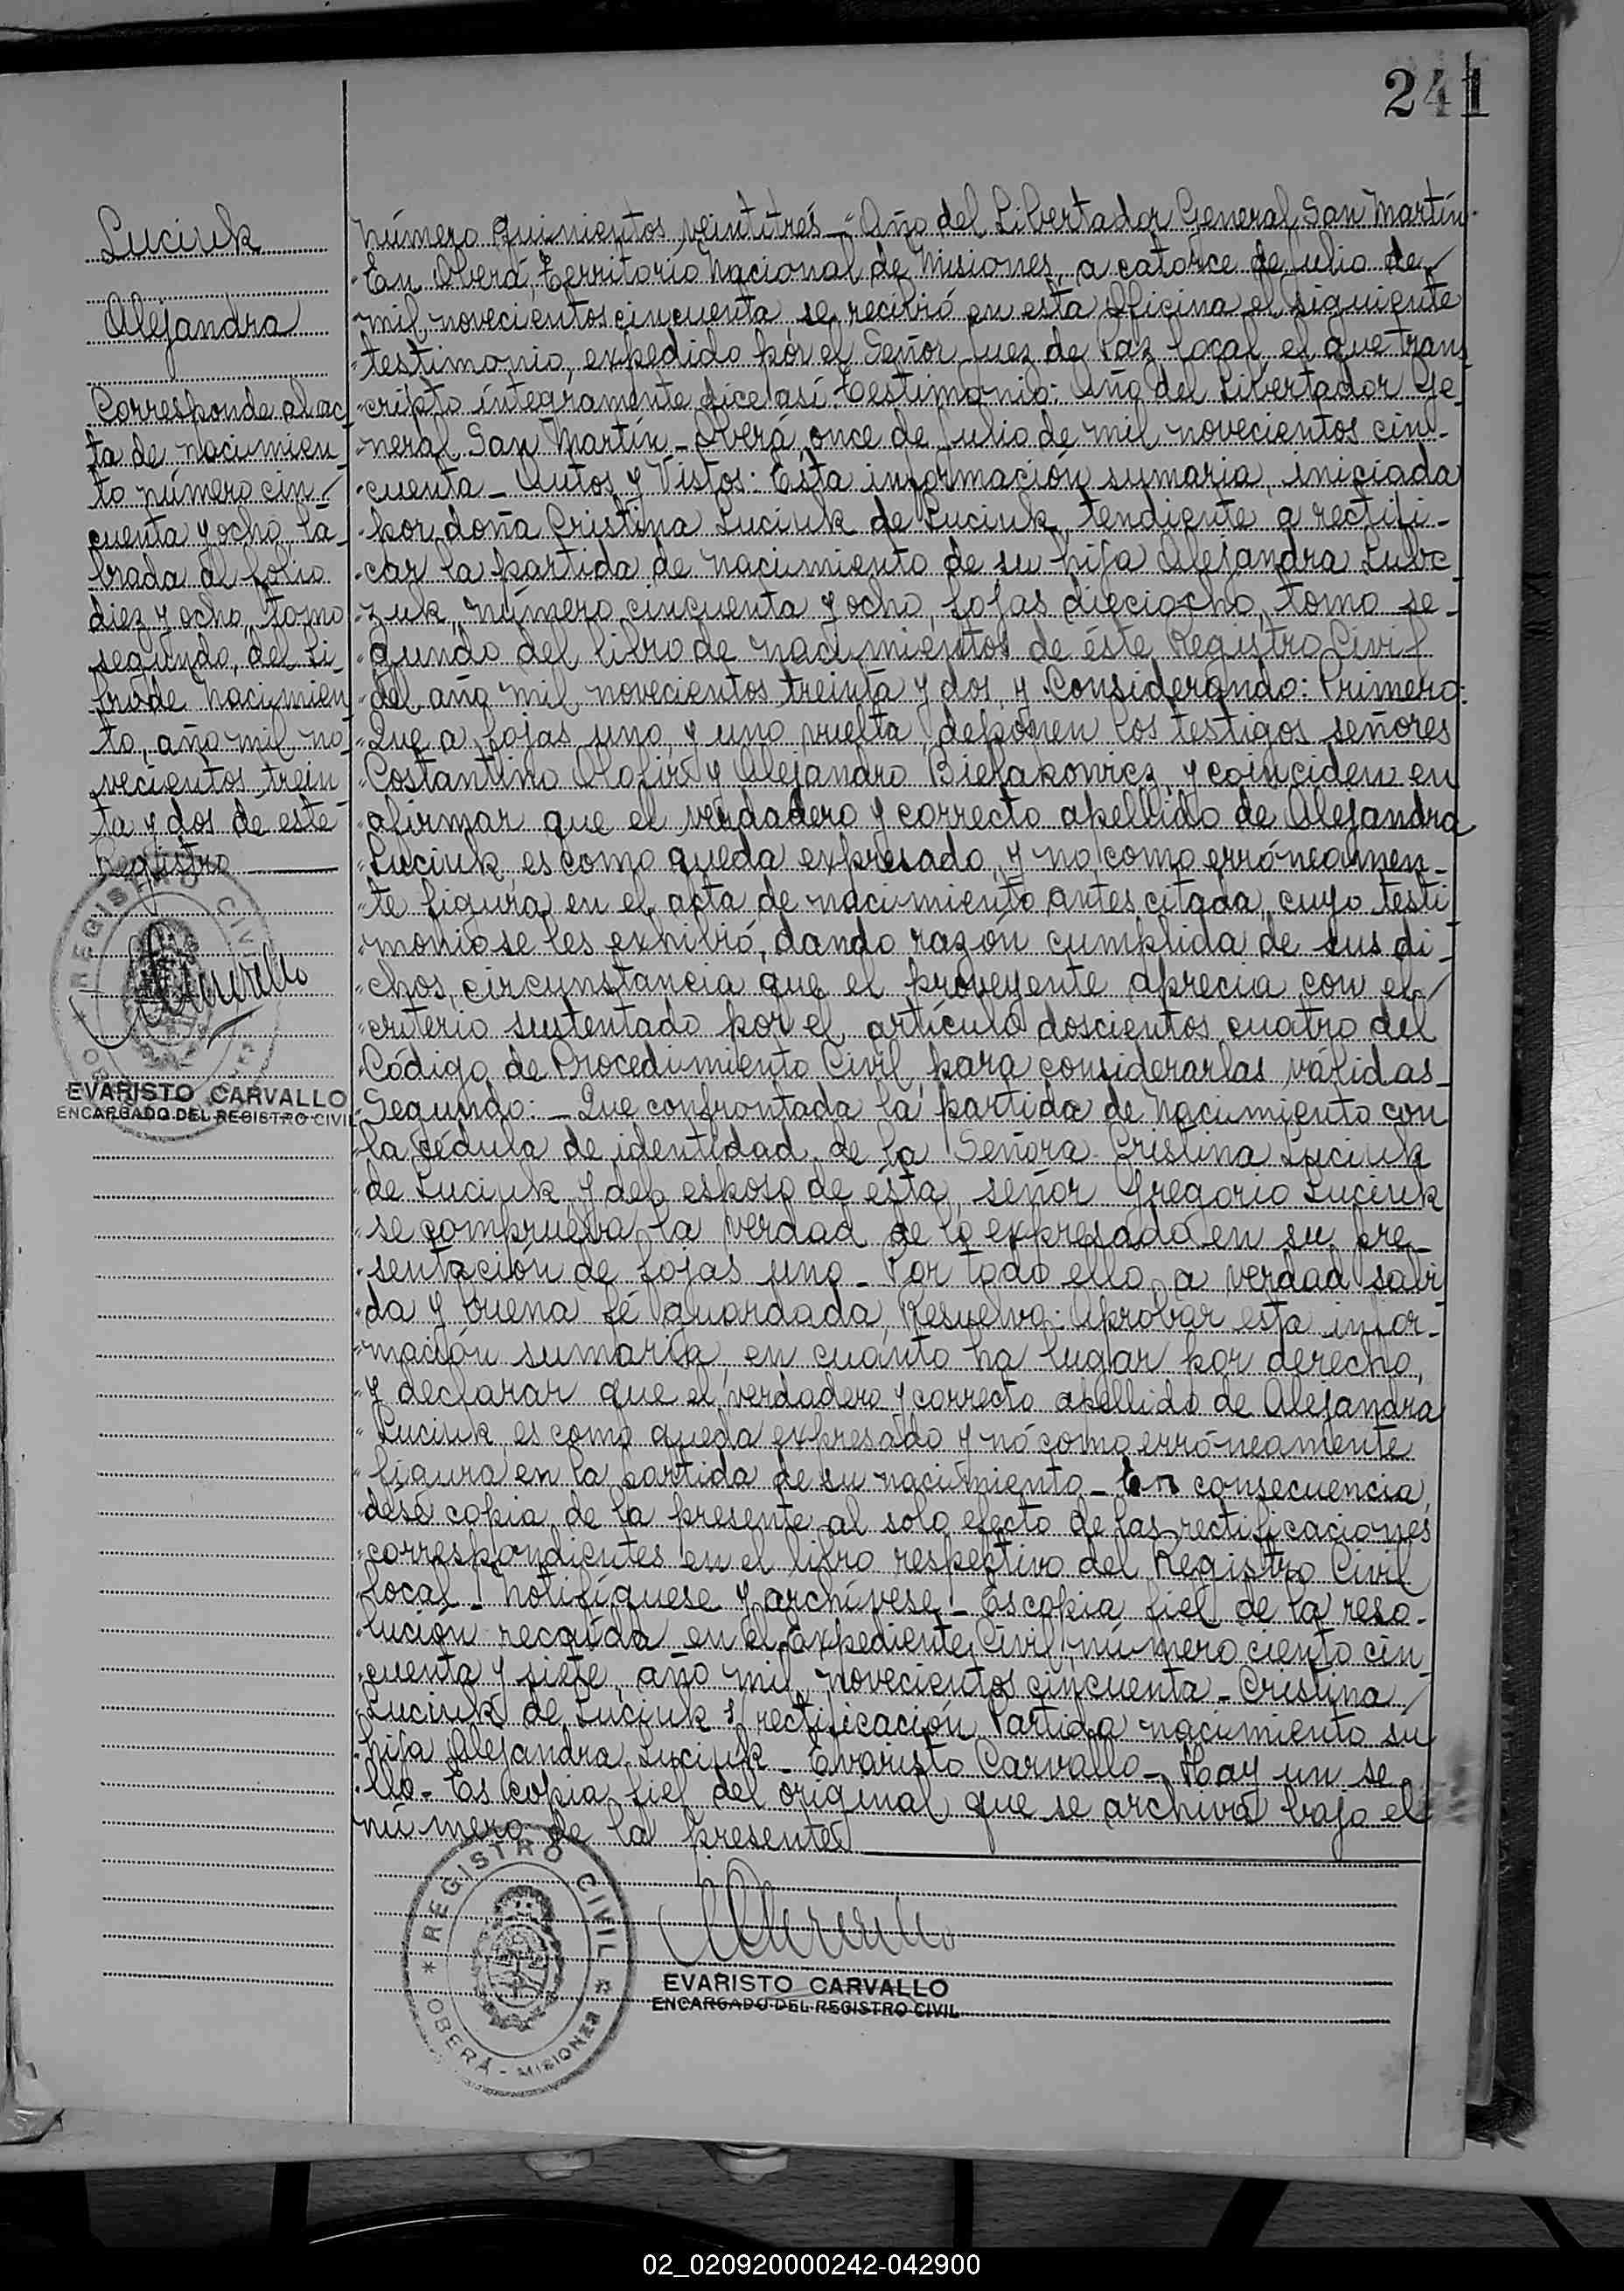 241
Luciuk
Alejandra
Corresponde al ac
ta de nacimien
to número cin/
cuenta y ocho, la-
brada al folio
diez y ocho, tomo
segundo, del li-
bro de Nacimien
to, año mil no-
vecientos trein
ta y dos de este
Registro
REGISTRO CIVIL
EVARISTO CARVALLO
ENCARGADO DEL REGISTRO CIVIL
Número quinientos veintitrés - "Año del Libertador General San Martín.
En Oberá, Territorio Nacional de Misiones, a catorce de Julio de/
mil novecientos cincuenta, se recibió en esta Oficina el siguiente
testimonio, expedido por el Señor Juez de Paz local, el que trans
cripto íntegramente dice así: Testimonio: Año del Libertador Ge-
neral San Martín - Oberá, once de Julio de mil novecientos cin-
cuenta - Autos y Vistos: Esta información sumaria, iniciada
por doña Cristina Luciuk de Luciuk, tendiente a rectifi-
car la partida de nacimiento de su hija Alejandra Lubc
zuk, número cincuenta y ocho, fojas dieciocho, tomo se-
gundo del libro de nacimientos de éste Registro Civil
del año mil novecientos treinta y dos, y Considerando: Primero:
Que a fojas uno, y uno vuelta, deponen los testigos señores
Costantino Olofir y Alejandro Bielakowicz, y coinciden en
afirmar que el verdadero y correcto apellido de Alejandra
Luciuk, es como queda expresado, y no como erróneamen-
te figura en el acta de nacimiento antes citada, cuyo testi
monio se les exhibió, dando razón cumplida de sus di-
chos, circunstancia que el proveyente aprecia con el/
criterio sustentado por el artículo doscientos cuatro del
Código de Procedimiento Civil, para considerarlas válidas-
Segundo: - Que confrontada la partida de nacimiento con
la cédula de identidad de la Señora Cristina Luciuk
de Luciuk y del esposo de ésta, señor Gregorio Luciuk
se comprueba la verdad de lo expresado en su pre-
sentación de fojas uno - Por todo ello, a verdad sabi
da y buena fé guardada, Resuelvo: Aprobar esta infor-
mación sumaria, en cuanto ha lugar por derecho,
y declarar que el verdadero y correcto apellido de Alejandra
Luciuk, es como queda expresado y nó como erróneamente
figura en la partida de su nacimiento - En consecuencia,
désé copia de la presente al solo efecto de las rectificaciones
correspondientes en el libro respectivo del Registro Civil
local - Notifíquese y archívese - Es copia fiel de la reso-
lución recaída en el Expediente Civil número ciento cin-
cuenta y siete, año mil novecientos cincuenta - Cristina/
Luciuk de Luciuk s/ rectificación Partida nacimiento su
hija Alejandra Luciuk - Evaristo Carvallo - Hay un se
llo - Es copia fiel del original que se archiva bajo el
número de la presente
REGISTRO CIVIL
OBERÁ - MISIONES
EVARISTO CARVALLO
ENCARGADO DEL REGISTRO CIVIL
02_020920000242-042900